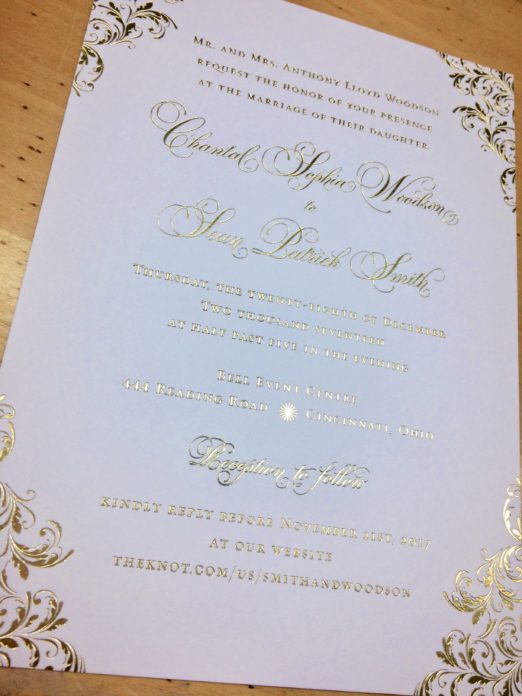 Mr. and Mrs. Anthony Lloyd Woodson
request the honor of your presence
at the marriage of their daughter
Chantal Sophia Woodson
to
Sean Patrick Smith
Thursday, the twenty-eighth of December
Two thousand seventeen
at half past five in the evening
Bell Event Centre
444 Reading Road Cincinnati, Ohio
Reception to follow
kindly reply before November 21st, 2017
at our website
theknot.com/us/smithandwoodson